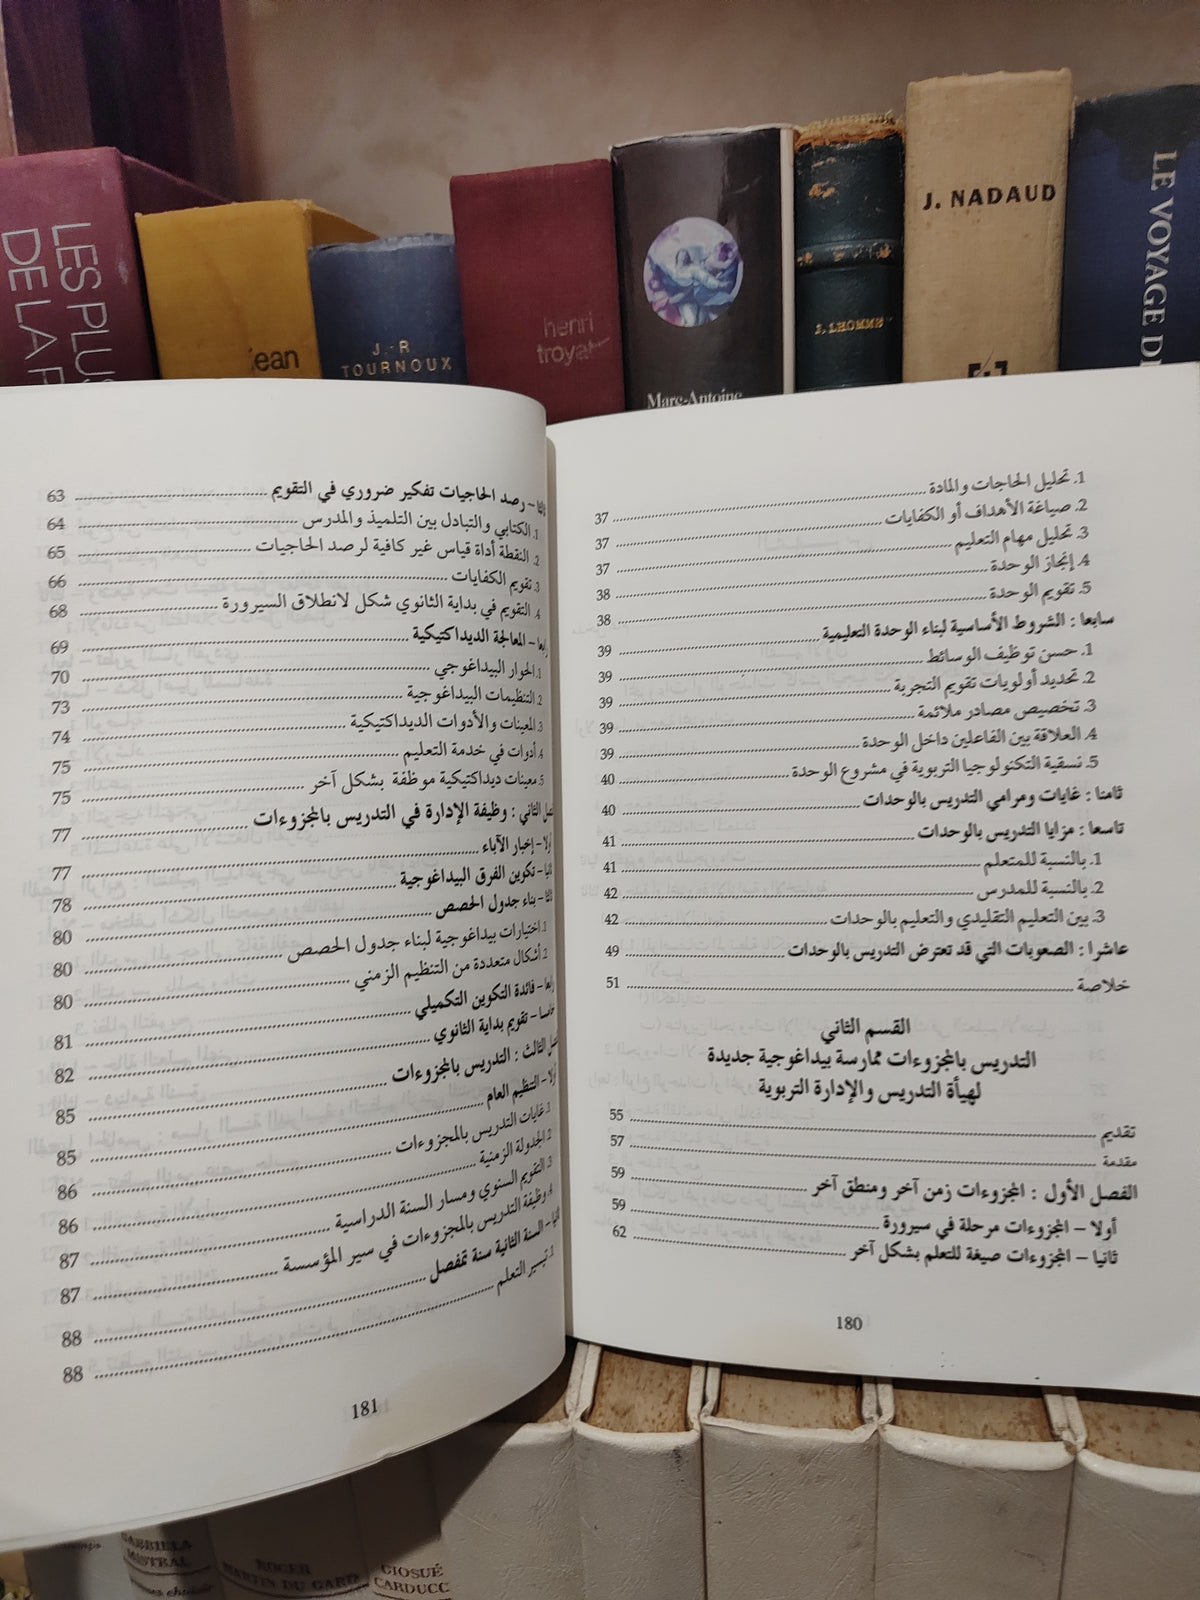 LES PLUS
DE LA F
ean
J.-R
TOURNOUX
henri
troyat
Marc-Antoine
J. LHOMME
J. NADAUD
LE VOYAGE D
1. تحليل الحاجات والمادة ........ 37
2. صياغة الأهداف أو الكفايات ........ 37
3. تحليل مهام التعليم ........ 37
4. إنجاز الوحدة ........ 38
5. تقويم الوحدة ........ 38
سابعا : الشروط الأساسية لبناء الوحدة التعليمية ........ 39
1. حسن توظيف الوسائط ........ 39
2. تحديد أولويات تقويم التجربة ........ 39
3. تخصيص مصادر ملائمة ........ 39
4. العلاقة بين الفاعلين داخل الوحدة ........ 39
5. نسقية التكنولوجيا التربوية في مشروع الوحدة ........ 40
ثامنا : غايات ومرامي التدريس بالوحدات ........ 40
تاسعا : مزايا التدريس بالوحدات ........ 41
1. بالنسبة للمتعلم ........ 41
2. بالنسبة للمدرس ........ 42
3. بين التعليم التقليدي والتعليم بالوحدات ........ 42
عاشرا : الصعوبات التي قد تعترض التدريس بالوحدات ........ 49
خلاصة ........ 51
القسم الثاني
التدريس بالمجزوءات ممارسة بيداغوجية جديدة
لهيأة التدريس والإدارة التربوية
تقديم ........ 55
مقدمة ........ 57
الفصل الأول : المجزوءات زمن آخر ومنطق آخر ........ 59
أولا – المجزوءات مرحلة في سيرورة ........ 59
ثانيا – المجزوءات صيغة للتعلم بشكل آخر ........ 62
180
– رصد الحاجيات تفكير ضروري في التقويم ........ 63
1. الكتابي والتبادل بين التلميذ والمدرس ........ 64
2. النقطة أداة قياس غير كافية لرصد الحاجيات ........ 65
3. تقويم الكفايات ........ 66
4. التقويم في بداية الثانوي شكل لانطلاق السيرورة ........ 68
رابعا – المعالجة الديداكتيكية ........ 69
1. الحوار البيداغوجي ........ 70
2. التنظيمات البيداغوجية ........ 73
3. المعينات والأدوات الديداكتيكية ........ 74
4. أدوات في خدمة التعليم ........ 75
5. معينات ديداكتيكية موظفة بشكل آخر ........ 75
صل الثاني : وظيفة الإدارة في التدريس بالمجزوءات ........ 77
أولا – إخبار الآباء ........ 77
ثانيا – تكوين الفرق البيداغوجية ........ 78
ثالثا – بناء جدول الحصص ........ 80
1. اختيارات بيداغوجية لبناء جدول الحصص ........ 80
2. أشكال متعددة من التنظيم الزمني ........ 80
رابعا – فائدة التكوين التكميلي ........ 81
خامسا – تقويم بداية الثانوي ........ 82
صل الثالث : التدريس بالمجزوءات ........ 85
أولا – التنظيم العام ........ 85
1. غايات التدريس بالمجزوءات ........ 86
2. الجدولة الزمنية ........ 86
3. التقويم السنوي ومسار السنة الدراسية ........ 87
4. وظيفة التدريس بالمجزوءات في سير المؤسسة ........ 87
ثانيا – السنة الثانية سنة تمفصل ........ 88
1. تيسير التعلم ........ 88
181
GABRIELA
MISTRAL
ROGER
MARTIN DU GARD
GIOSUÉ
CARDUCC